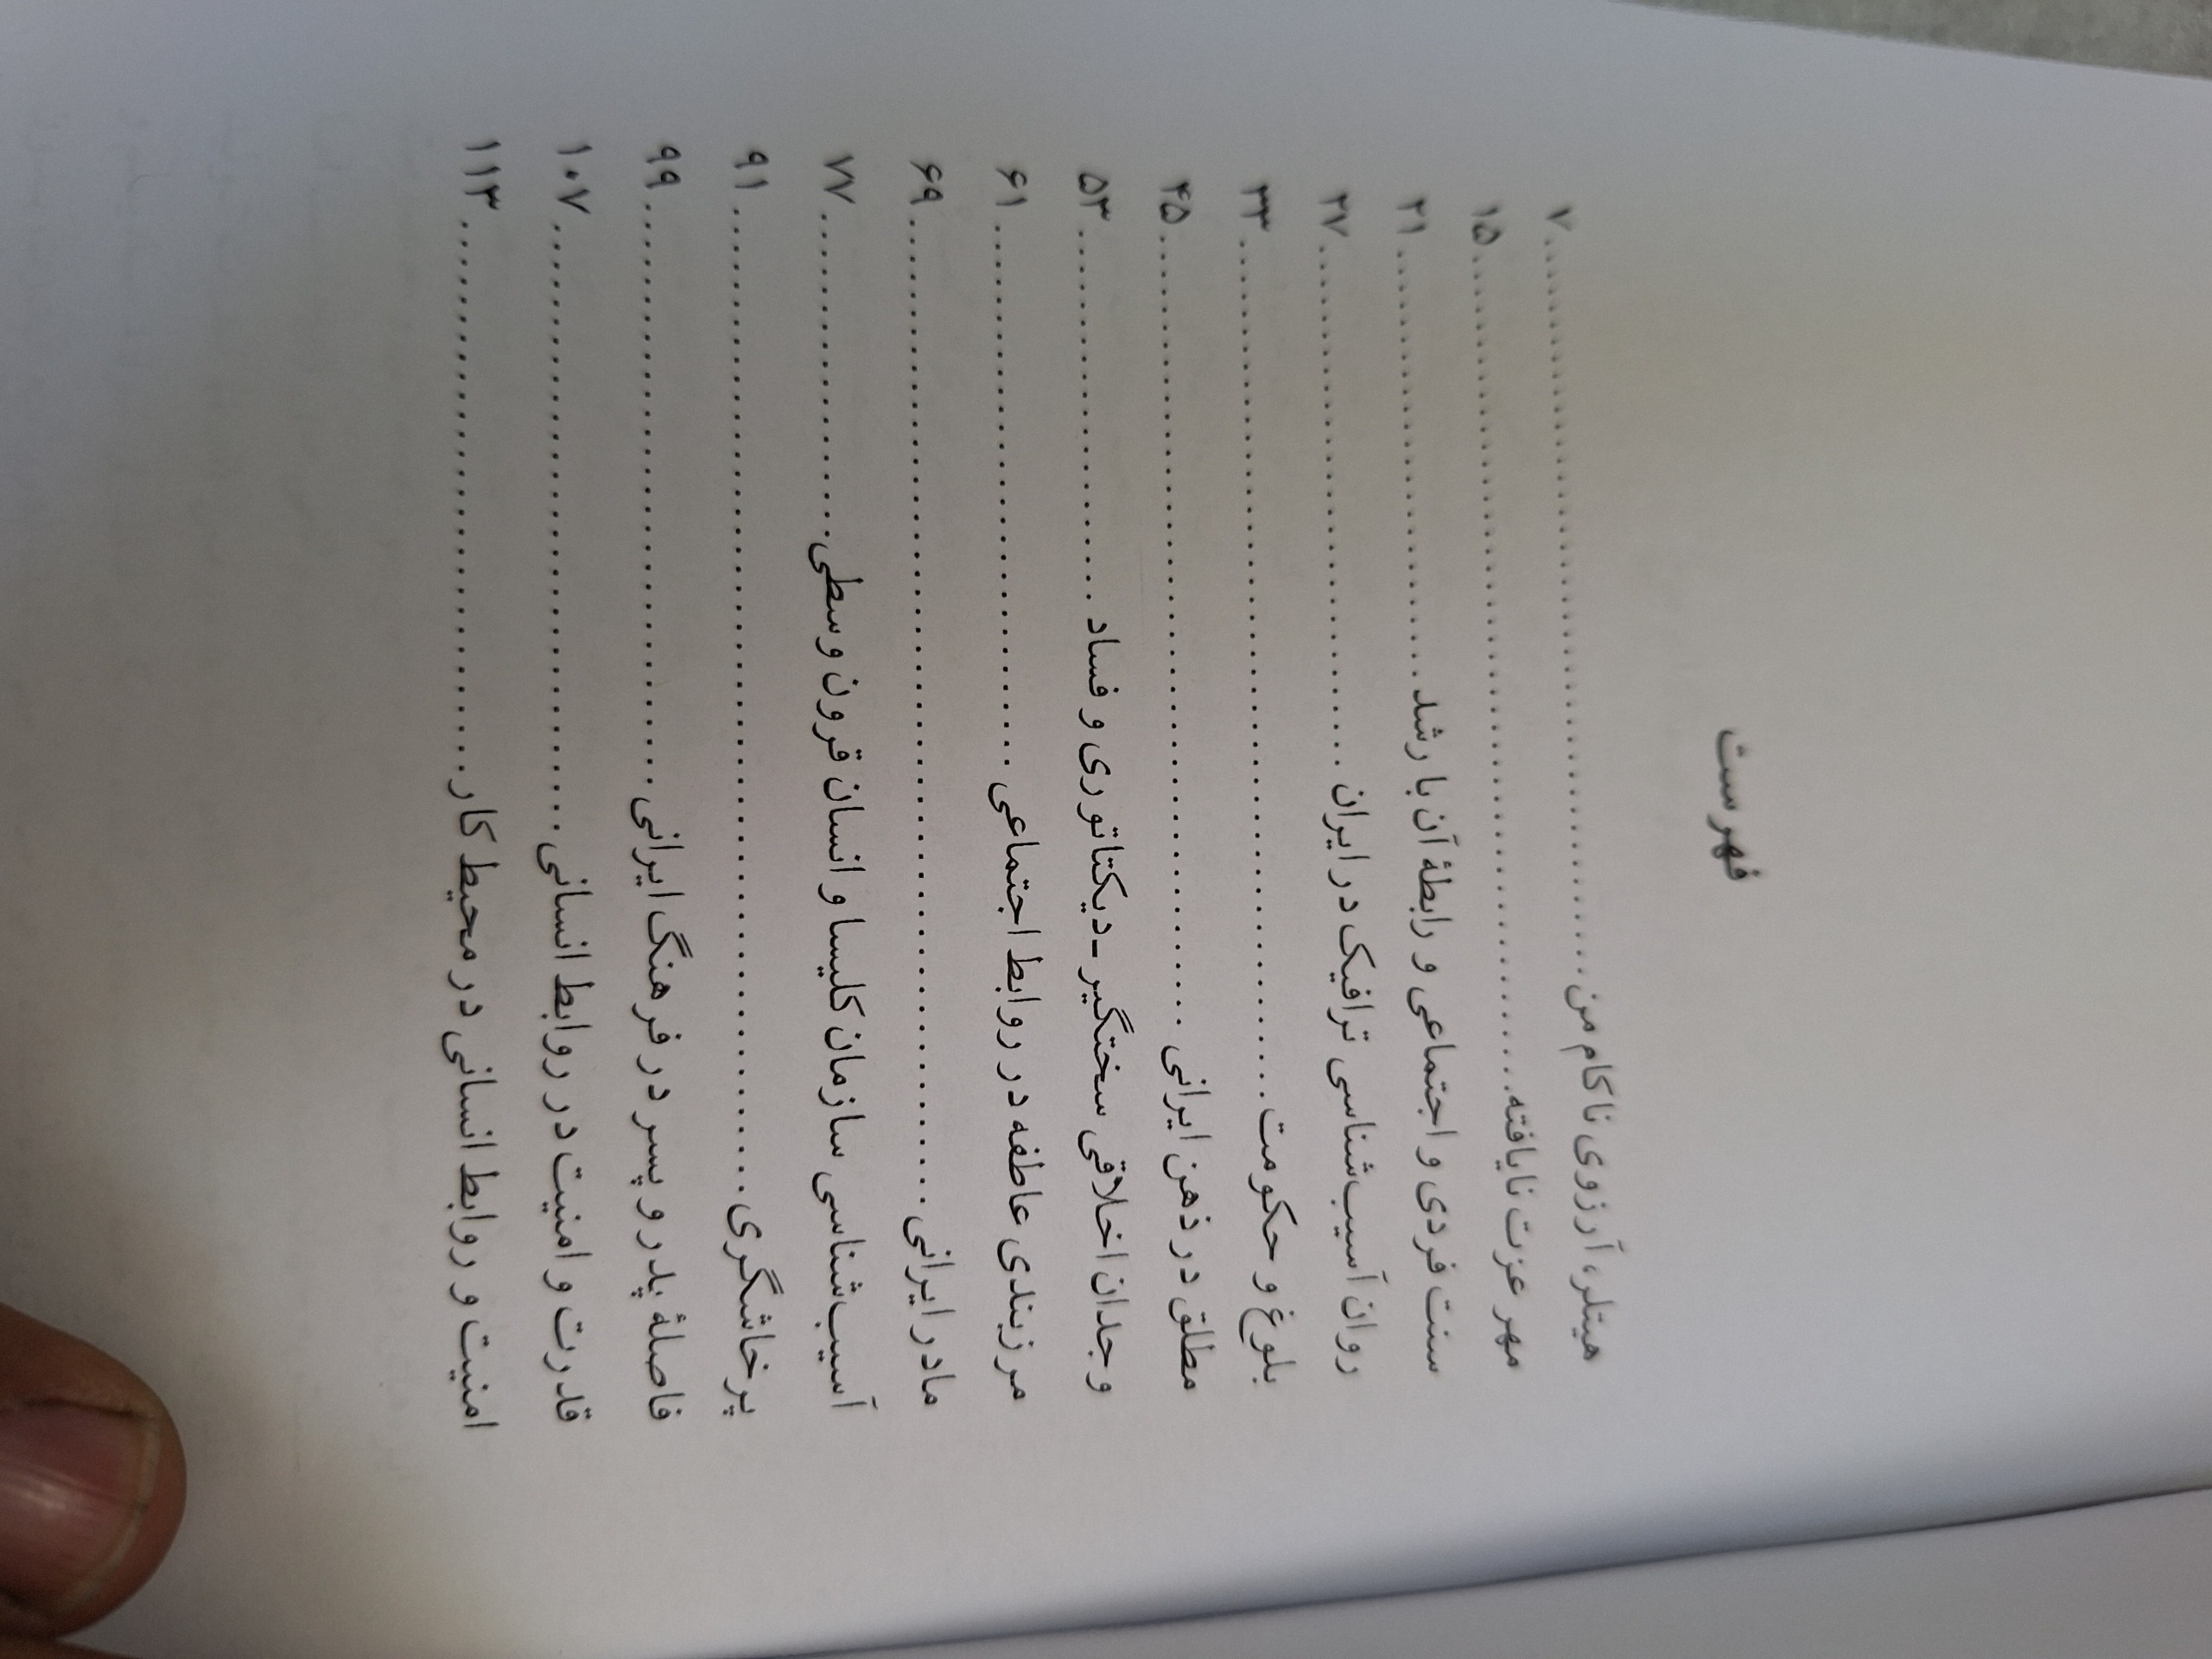 فهرست
هیتلر، آرزوی ناکام من ........ ۷
مهر عزت نایافته ........ ۱۵
سنت فردی و اجتماعی و رابطهٔ آن با رشد ........ ۲۱
روان آسیب‌شناسی ترافیک در ایران ........ ۲۷
بلوغ و حکومت ........ ۳۳
مطلق در ذهن ایرانی ........ ۴۵
وجدان اخلاقی سختگیر-دیکتاتوری و فساد ........ ۵۳
مرزبندی عاطفه در روابط اجتماعی ........ ۶۱
مادر ایرانی ........ ۶۹
آسیب‌شناسی سازمان کلیسا و انسان قرون وسطی ........ ۷۷
پرخاشگری ........ ۹۱
فاصلهٔ پدر و پسر در فرهنگ ایرانی ........ ۹۹
قدرت و امنیت در روابط انسانی ........ ۱۰۷
امنیت و روابط انسانی در محیط کار ........ ۱۱۳